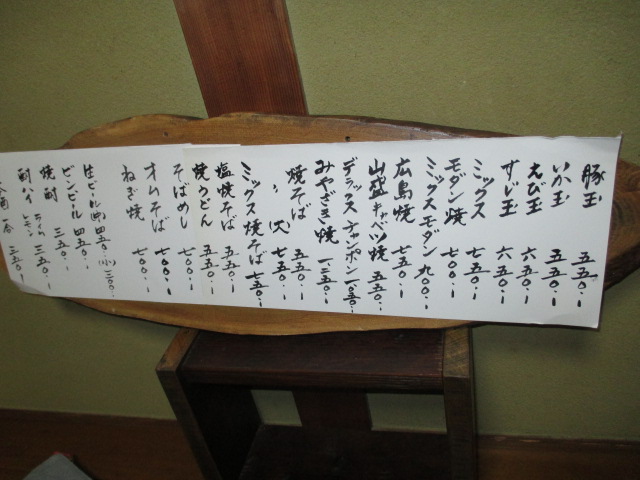 豚玉 五五〇.ー
いか玉 五五〇.ー
えび玉 六五〇.ー
すじ玉 六五〇.ー
ミックス 七五〇.ー
モダン焼 七〇〇.ー
ミックスモダン 九〇〇.ー
広島焼 七五〇.ー
山盛キャベツ焼 五五〇.ー
デラックスチャンポン 一〇五〇.ー
みやざき焼 一二五〇.ー
焼そば 五五〇.ー
〃 大 七五〇.ー
ミックス焼そば 七五〇.ー
塩焼そば 五五〇.ー
焼うどん 五五〇.ー
そばめし 七〇〇.ー
オムそば 七〇〇.ー
ねぎ焼 七〇〇.ー
生ビール(中) 四五〇.ー (小) 三〇〇.ー
ビンビール 五五〇.ー
焼酎 三五〇.ー
酎ハイ ライム レモン 三五〇.ー